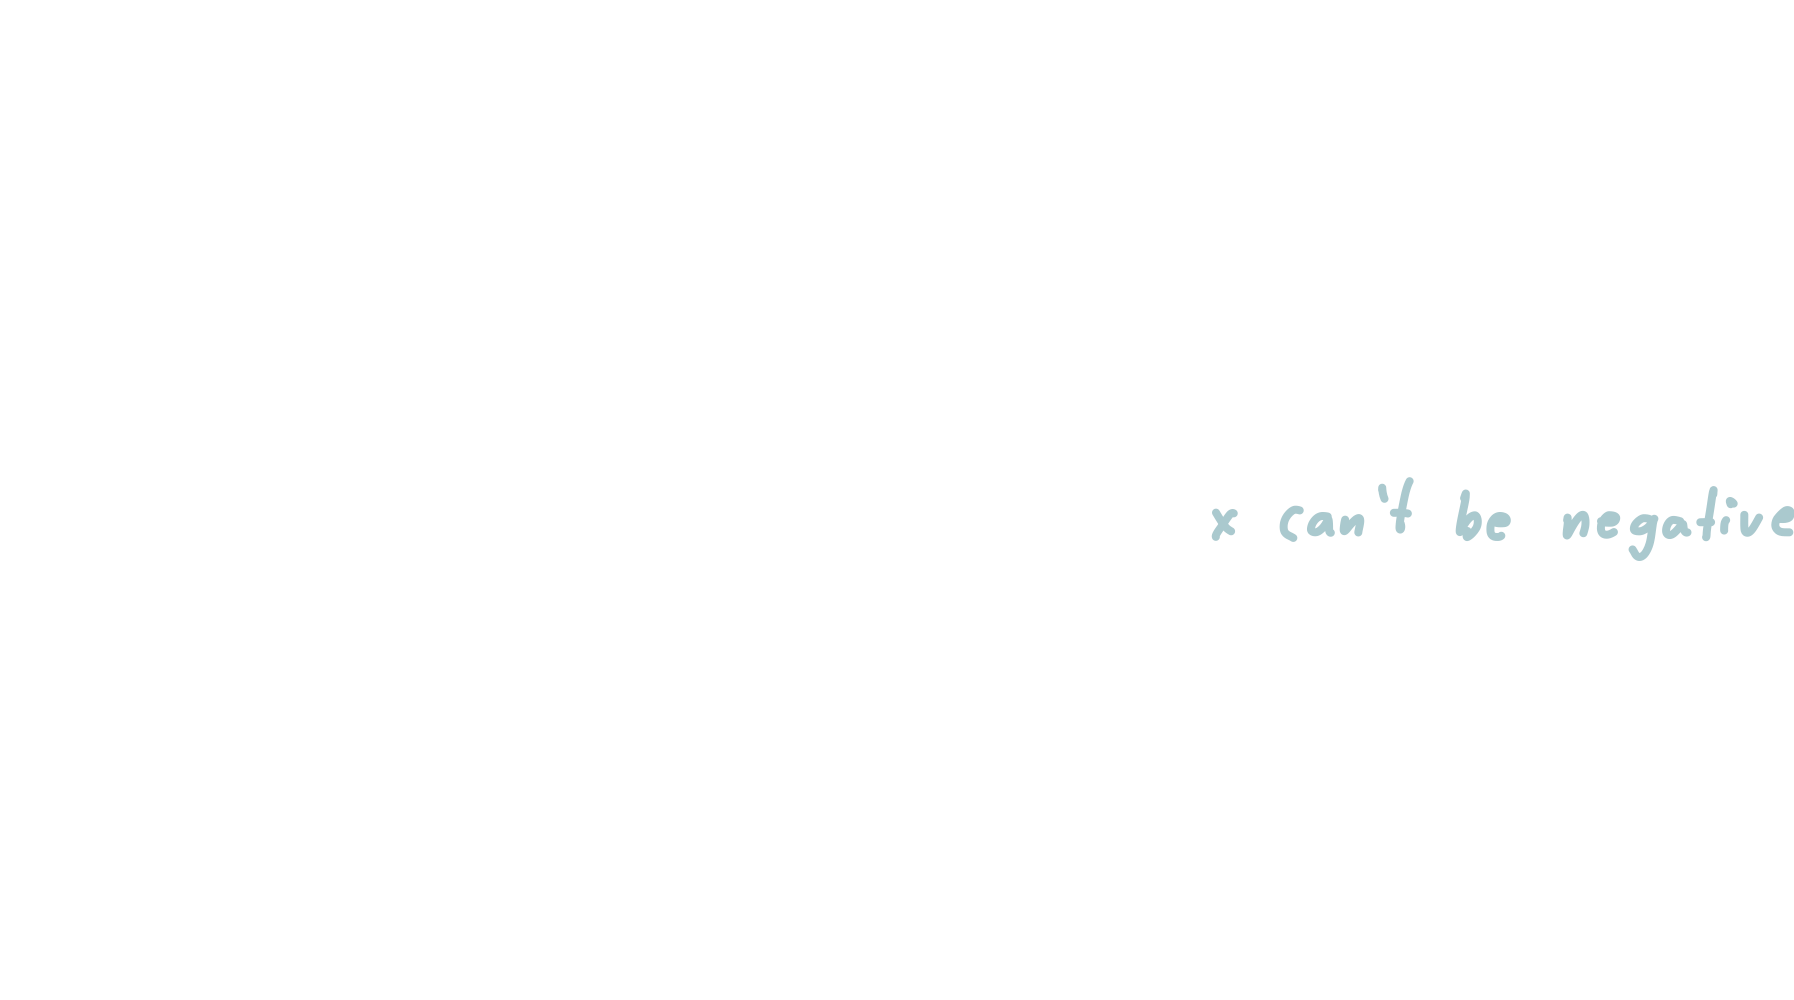 x can't be negative